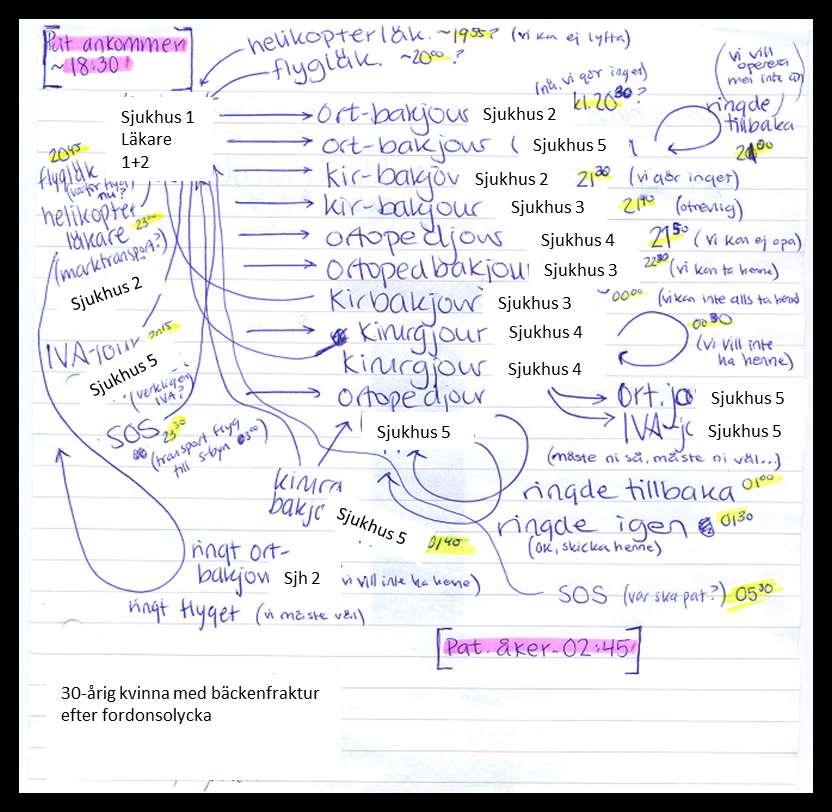 Pat ankommer
~ 18:30
helikopterläk. ~ 19⁵⁵? (vi kan ej lyfta)
flygläk. ~20⁰⁰?
Sjukhus 1
Läkare
1+2
ort-bakjour Sjukhus 2 (nä, vi gör inget) kl. 20³⁰?
ort-bakjour ( Sjukhus 5
ringde
tillbaka
21⁰⁰
(vi vill
operera
men inte än)
kir-bakjou Sjukhus 2 21³⁰ (vi gör inget)
kir-bakjour Sjukhus 3 21⁴⁰ (otrevlig)
ortopedjour Sjukhus 4 21⁵⁰ (vi kan ej opa)
ortopedbakjou Sjukhus 3 22³⁰ (vi kan ta henne)
Kirbakjour Sjukhus 3 00⁰⁰ (vi kan inte alls ta henne)
Kirurgjour Sjukhus 4 00³⁰
(vi vill inte
ha henne)
Kirurgjour Sjukhus 4
ortopedjour
Sjukhus 5
Ort.jo Sjukhus 5
IVA-jo Sjukhus 5
(måste ni så, måste ni väl...)
ringde tillbaka 01⁰⁰
ringde igen 01³⁰
(ok, skicka henne)
20⁴⁵
flygläk
(varför flyg
nu?)
helikopter
läkare 23⁰⁰
(marktransport?)
Sjukhus 2
IVA-jour
Sjukhus 5
(verkligen
IVA?)
SOS 23³⁰
(transport flyg
till s-byn 03⁰⁰)
kirurg
bakjo
Sjukhus 5
01⁴⁰
ringt ort-
bakjou Sjh 2 vi vill inte ha henne)
ringt flyget (vi måste väl)
SOS (var ska pat?) 05³⁰
Pat. åker ~ 02:45
30-årig kvinna med bäckenfraktur
efter fordonsolycka